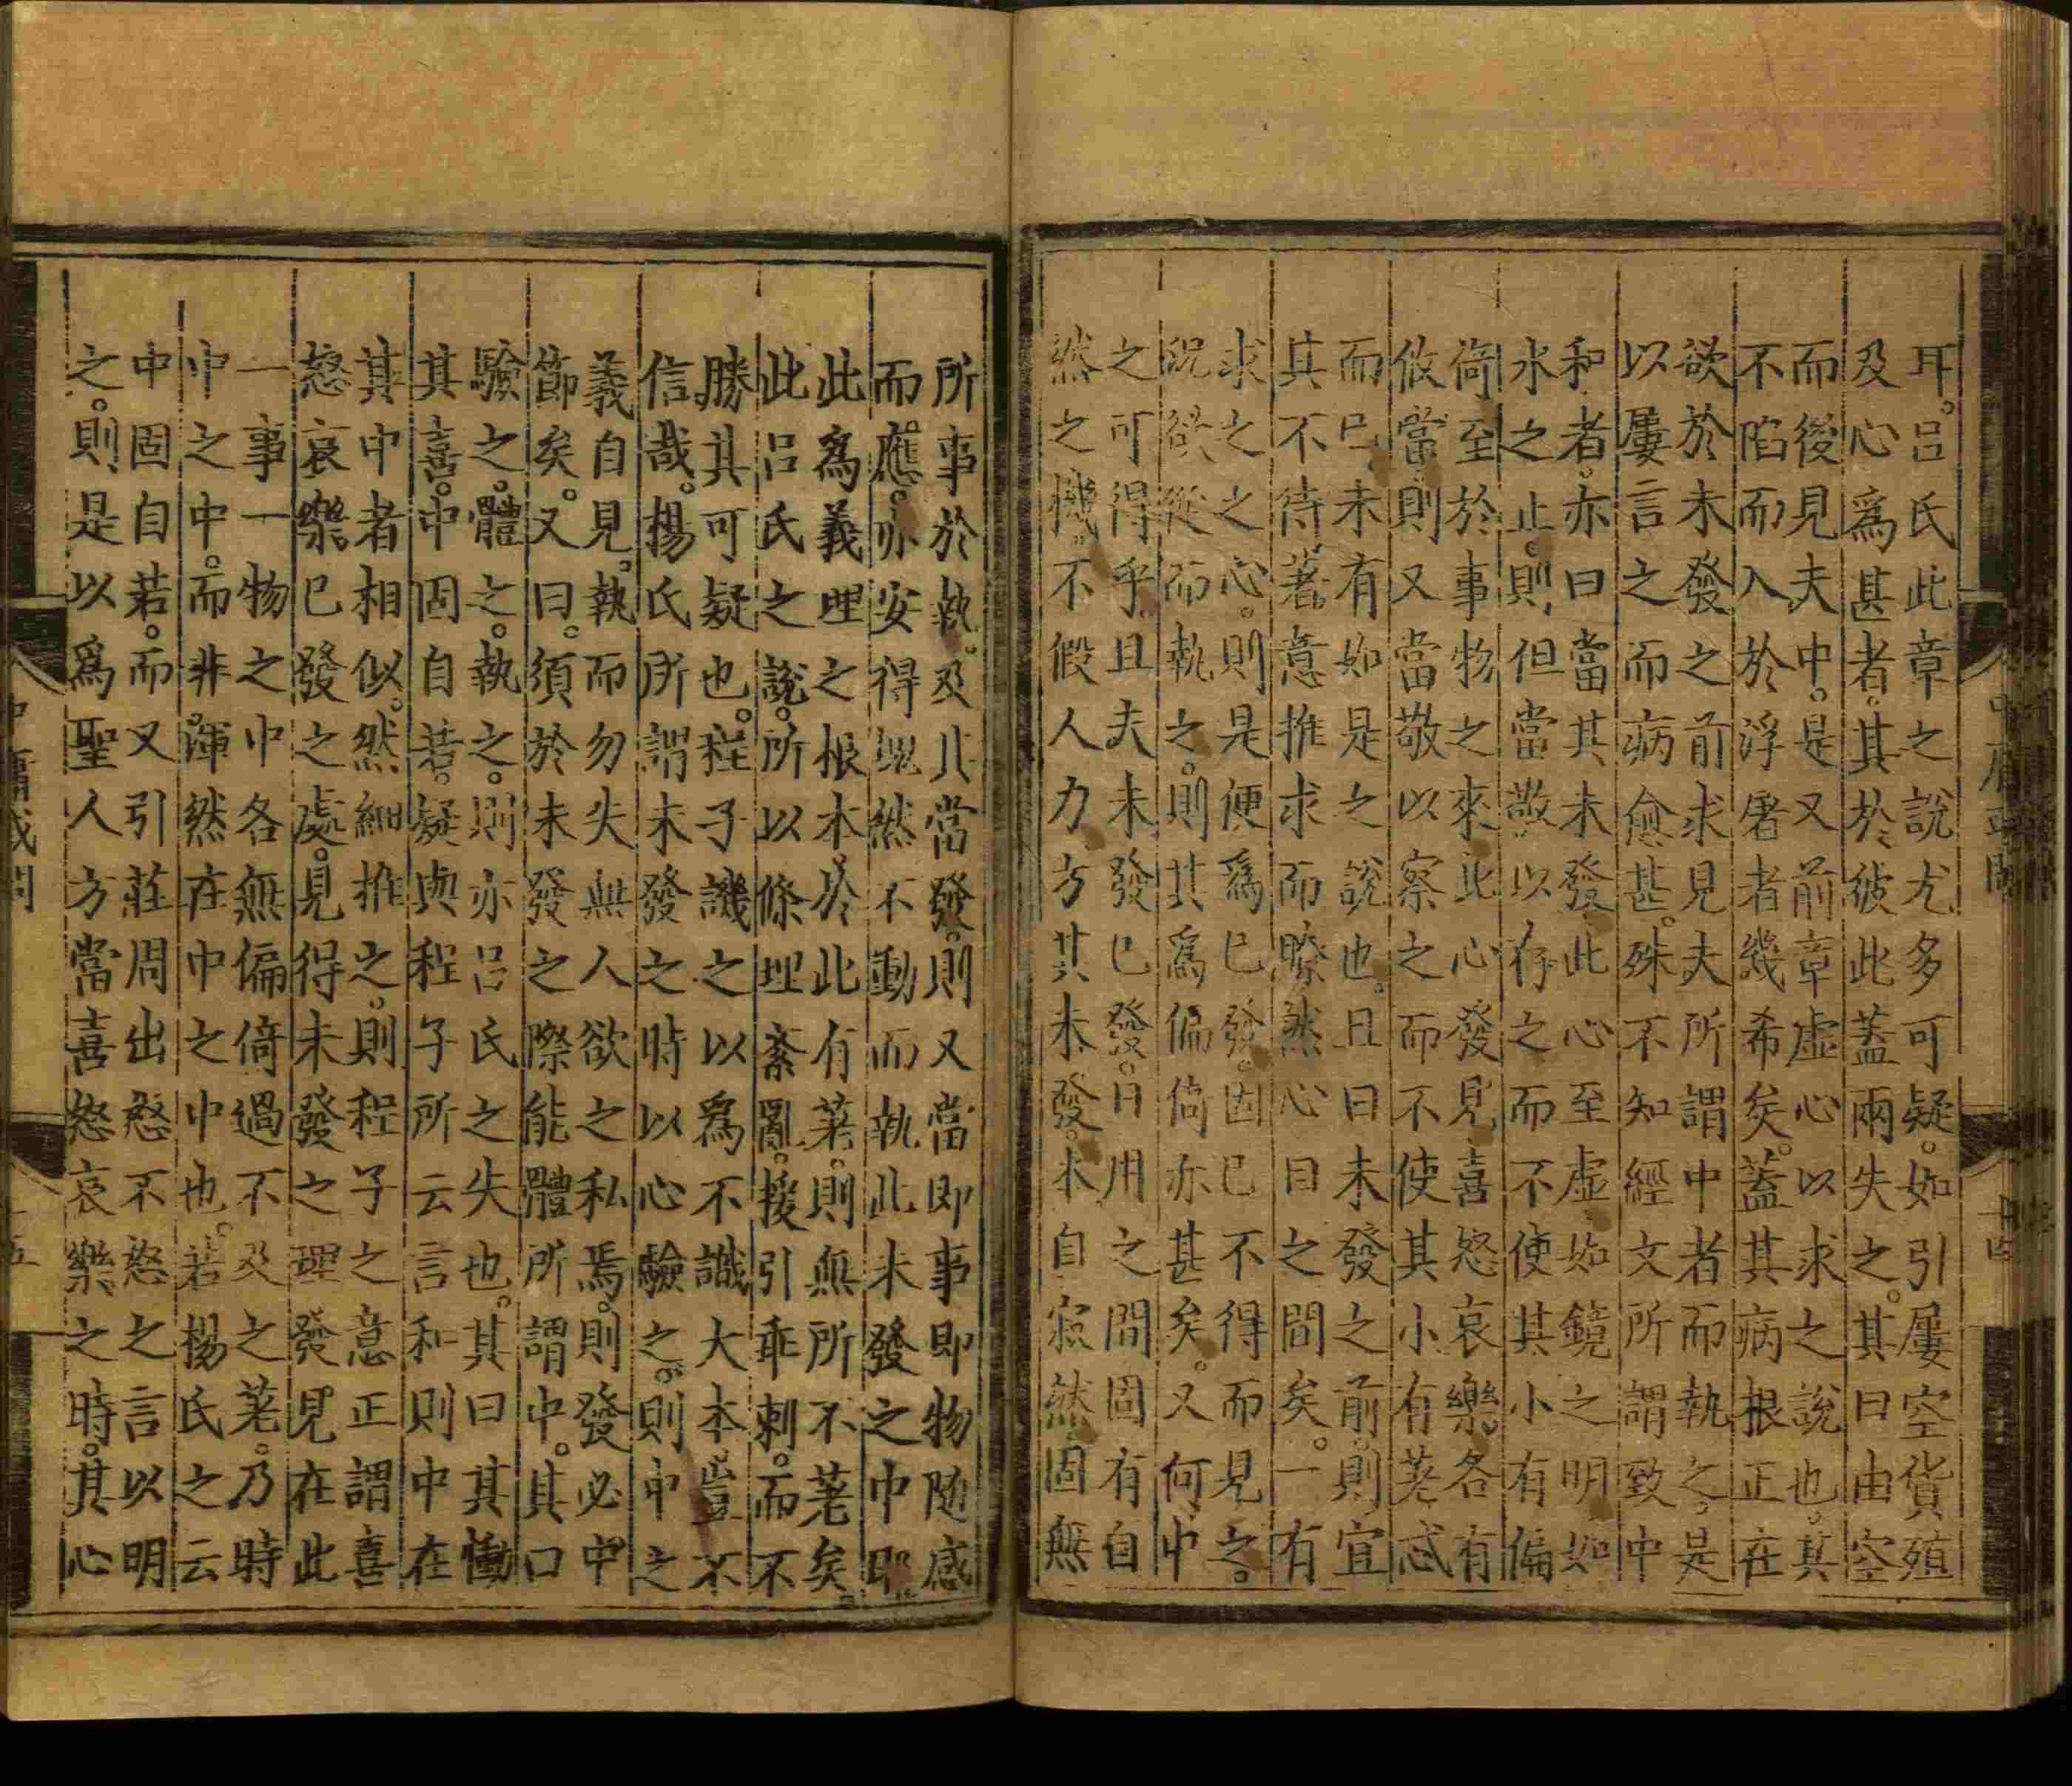 耳。吕氏此章之說尤多可疑。如引屢空貨殖
及心爲甚者。其於彼此蓋兩失之。其曰由空
而後見夫中。是又前章虛心以求之說也。其
不陷而入於浮屠者幾希矣。蓋其病根正在
欲於未發之前求見夫所謂中者而執之。是
以屢言之而病愈甚。殊不知經文所謂致中
和者。亦曰當其未發此心至虛如鏡之明如
水之止。則但當敬以存之而不使其小有偏
倚至於事物之來此心發見喜怒哀樂。各有
攸當。則又當敬以察之而不使其小有差忒
而巳。未有如是之說也。且曰未發之前。則宜
其不待著意推求而瞭然心目之間矣。一有
求之之心。則是便爲巳發。固巳不得而見之。
况欲從而執之。則其爲偏倚亦甚矣。又何中
之可得乎。且夫未發巳發。日用之間固有自
然之機。不假人力方其未發。本自寂然固無
所事於執。及其當發。則又當即事即物随感
而應。亦安得塊然不動而執此未發之中耶
此爲義理之根本於此有差。則無所不差矣。
此吕氏之說。所以條理紊亂。援引乖剌。而不
勝其可疑也。程子譏之以爲不識大本。豈不
信哉。楊氏所謂未發之時以心驗之。則中之
義自見。執而勿失無人欲之私焉。則發必中
節矣。又曰。須於未發之際能體所謂中。其曰
驗之。體之。執之。則亦吕氏之失也。其曰其慟
其喜。中固自若。疑與程子所云言和則中在
其中者相似。然細推之。則程子之意正謂喜
怒哀樂巳發之處。見得未發之理發見在此
一事一物之中各無偏倚過不及之差。乃時
中之中。而非。渾然在中之中也。若楊氏之云
中固自若。而又引莊周出怒不怒之言以明
之。則是以爲聖人方當喜怒哀樂之時。其心
中庸或問
十四